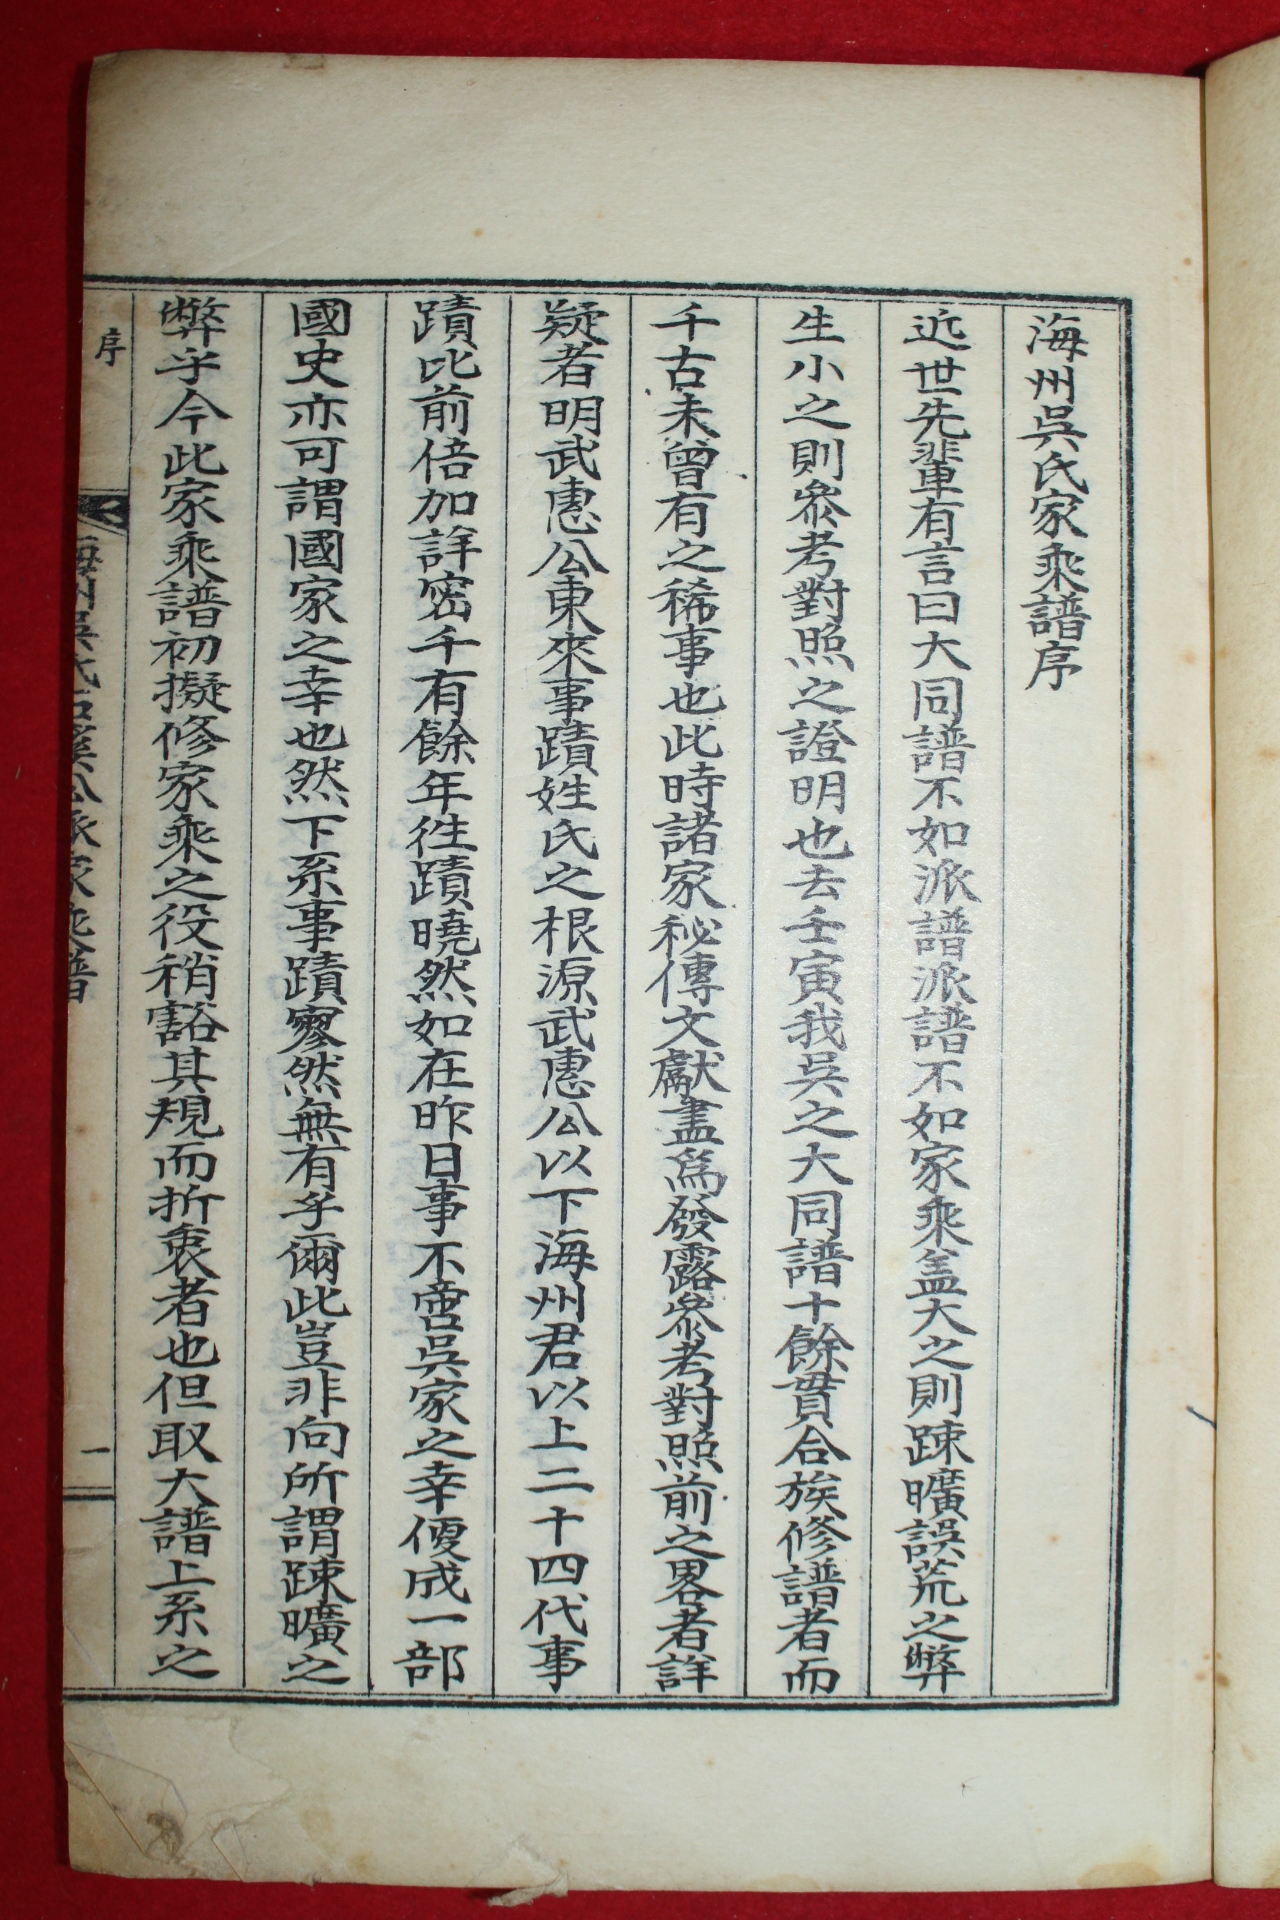 海州吳氏家乘譜序
近世先輩有言曰大同譜不如派譜派譜不如家乘盖大之則踈曠誤荒之弊
生小之則叅考對照之證明也去壬寅我吳之大同譜十餘貫合族修譜者而
千古未曾有之稀事也此時諸家秘傳文獻盡爲發露叅考對照前之畧者詳
疑者明武惠公東來事蹟姓氏之根源武惠公以下海州君以上二十四代事
蹟比前倍加詳密千有餘年徃蹟曉然如在昨日事不啻吳家之幸便成一部
國史亦可謂國家之幸也然下系事蹟寥然無有乎爾此豈非向所謂踈曠之
弊乎今此家乘譜初擬修家乘之役稍豁其規而折衷者也但取大譜上系之
序
海州吳氏石溪公派家乘譜
一